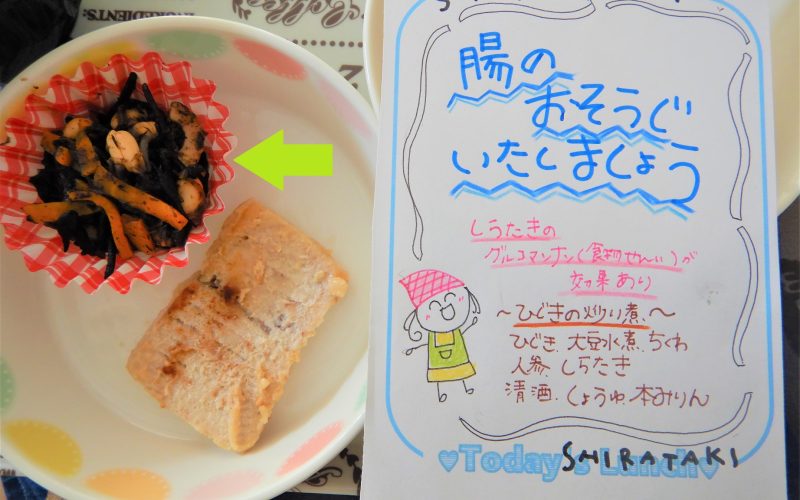 INGREDIENTS:
Coffee
2
腸の
おそうじ
いたしましょう
しらたきの
グルコマンナン(食物せんい)が
効果あり
～ひじきの炒り煮～
ひじき、大豆水煮、ちくわ
人参、しらたき
清酒、しょうゆ、本みりん
♥Today's Lunch♥
SHIRATAKI